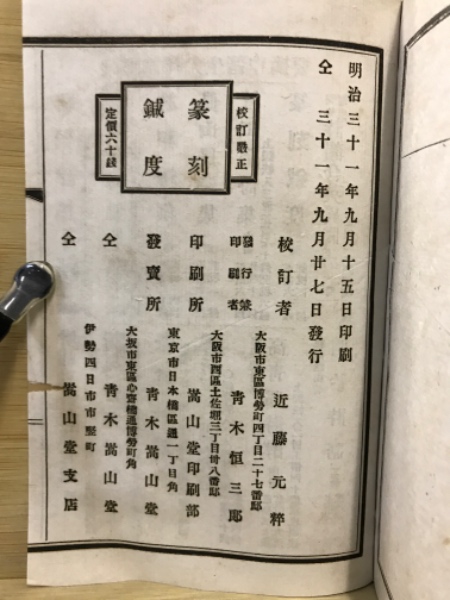 明治三十一年九月十五日印刷
仝 三十一年九月廿七日發行
校訂嚴正
篆刻
鍼度
定價六十錢
校訂者 近藤元粹
大阪市東區博勞町四丁目二十七番邸
發行兼印刷者 青木恒三郎
大阪市西區土佐堀三丁目卅八番邸
印刷所 嵩山堂印刷部
東京市日本橋區通一丁目角
發賣所 青木嵩山堂
大坂市東區心齋橋通博勞町角
仝 青木嵩山堂
伊勢四日市市竪町
仝 嵩山堂支店